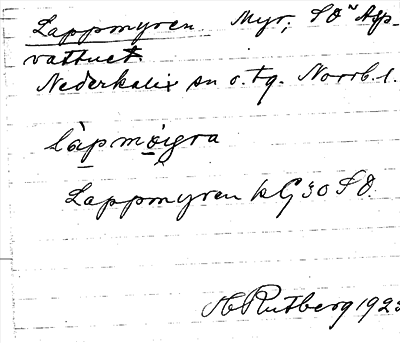 Lappmyren. Myr, SO Asp-
vattnet
Nederkalix sn o. tg. Norrb. l.
låpmöigra
Lappmyren kG 30 SO.
H Rutberg 192